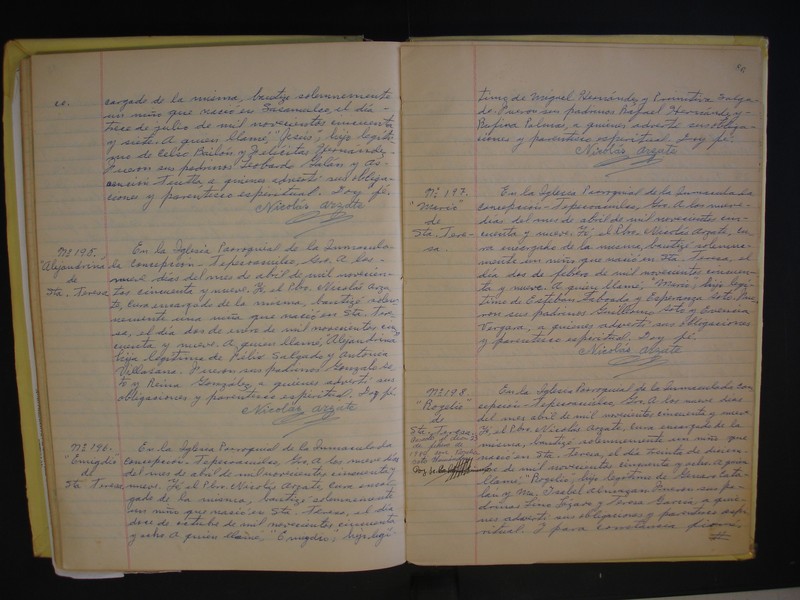 co.
cargado de la misma, bautizé solemnemente
un niño que nació en Sasamulco, el día
trece de julio de mil novecientos cincuenta
y siete. A quien llamé, "Jesús", hijo legíti-
mo de Celso Bailón y Felícitas Hernández.
Fueron sus padrinos: Leobardo Galán y As-
cención, a quienes advertí sus obliga-
ciones y parentesco espiritual. Doy fé.
Nicolás Arzate
Nº 195.
"Alejandrina
de
Sta. Teresa
En la Iglesia Parroquial de la Inmacula-
da Concepción - Tepecoacuilco, Gro. A los
nueve días del mes de abril de mil novecien-
tos cincuenta y nueve. Yo el Pbro. Nicolás Arza-
te, cura encargado de la misma, bautizé solem-
nemente una niña que nació en Sta. Tere-
sa, el día dos de enero de mil novecientos cin-
cuenta y nueve. A quien llamé, "Alejandrina"
hija legítima de Félix Salgado y Antonia
Villasana. Fueron sus padrinos Gonzalo So-
to y Reina González, a quienes advertí sus
obligaciones y parentesco espiritual. Doy fé.
Nicolás Arzate
Nº 196.
"Emigdio"
de
Sta. Teresa
En la Iglesia Parroquial de la Inmaculada
Concepción - Tepecoacuilco, Gro. A los nueve días
del mes de abril de mil novecientos cincuenta y
nueve. Yo el Pbro. Nicolás Arzate, cura encar-
gado de la misma, bautizé solemnemente
un niño que nació en Sta. Teresa, el día
doce de octubre de mil novecientos cincuenta
y ocho. A quien llamé, "Emigdio", hijo legí-
timo de Miguel Hernández y Primitiva Salga-
do. Fueron sus padrinos Rafael Hernández y
Rufina Palmas, a quienes advertí sus obliga-
ciones y parentesco espiritual. Doy fé.
Nicolás Arzate
Nº 197.
"Mario"
de
Sta. Tere-
sa.
En la Iglesia Parroquial de la Inmaculada
Concepción - Tepecoacuilco, Gro. A los nueve
días del mes de abril de mil novecientos cin-
cuenta y nueve. Yo, el Pbro. Nicolás Arzate, cu-
ra encargado de la misma, bautizé solemne-
mente un niño que nació en Sta. Teresa, el
día dos de febrero de mil novecientos cincuen-
ta y nueve. A quien llamé, "Mario", hijo legí-
timo de Esteban Taboada y Esperanza Soto. Fue-
ron sus padrinos Guillermo Soto y Evencia
Vergara, a quienes advertí sus obligaciones
y parentesco espiritual. Doy fé.
Nicolás Arzate
Nº 198.
"Rogelio"
de
Sta. Teresa.
En la Iglesia Parroquial de la Inmaculada Con-
cepción - Tepecoacuilco, Gro. A los nueve días
del mes abril de mil novecientos cincuenta y nueve
Yo, el Pbro. Nicolás Arzate, cura encargado de la
misma, bautizé solemnemente un niño que
nació en Sta. Teresa, el día treinta de diciem-
bre de mil novecientos cincuenta y ocho. A quien
llamé, "Rogelio", hijo legítimo de Genaro Cata-
lán y Ma. Isabel Almazán. Fueron sus pa-
drinos Lino Lázaro y Teresa García, a quie-
nes advertí sus obligaciones y parentesco espi-
ritual. Y para constancia firmé.